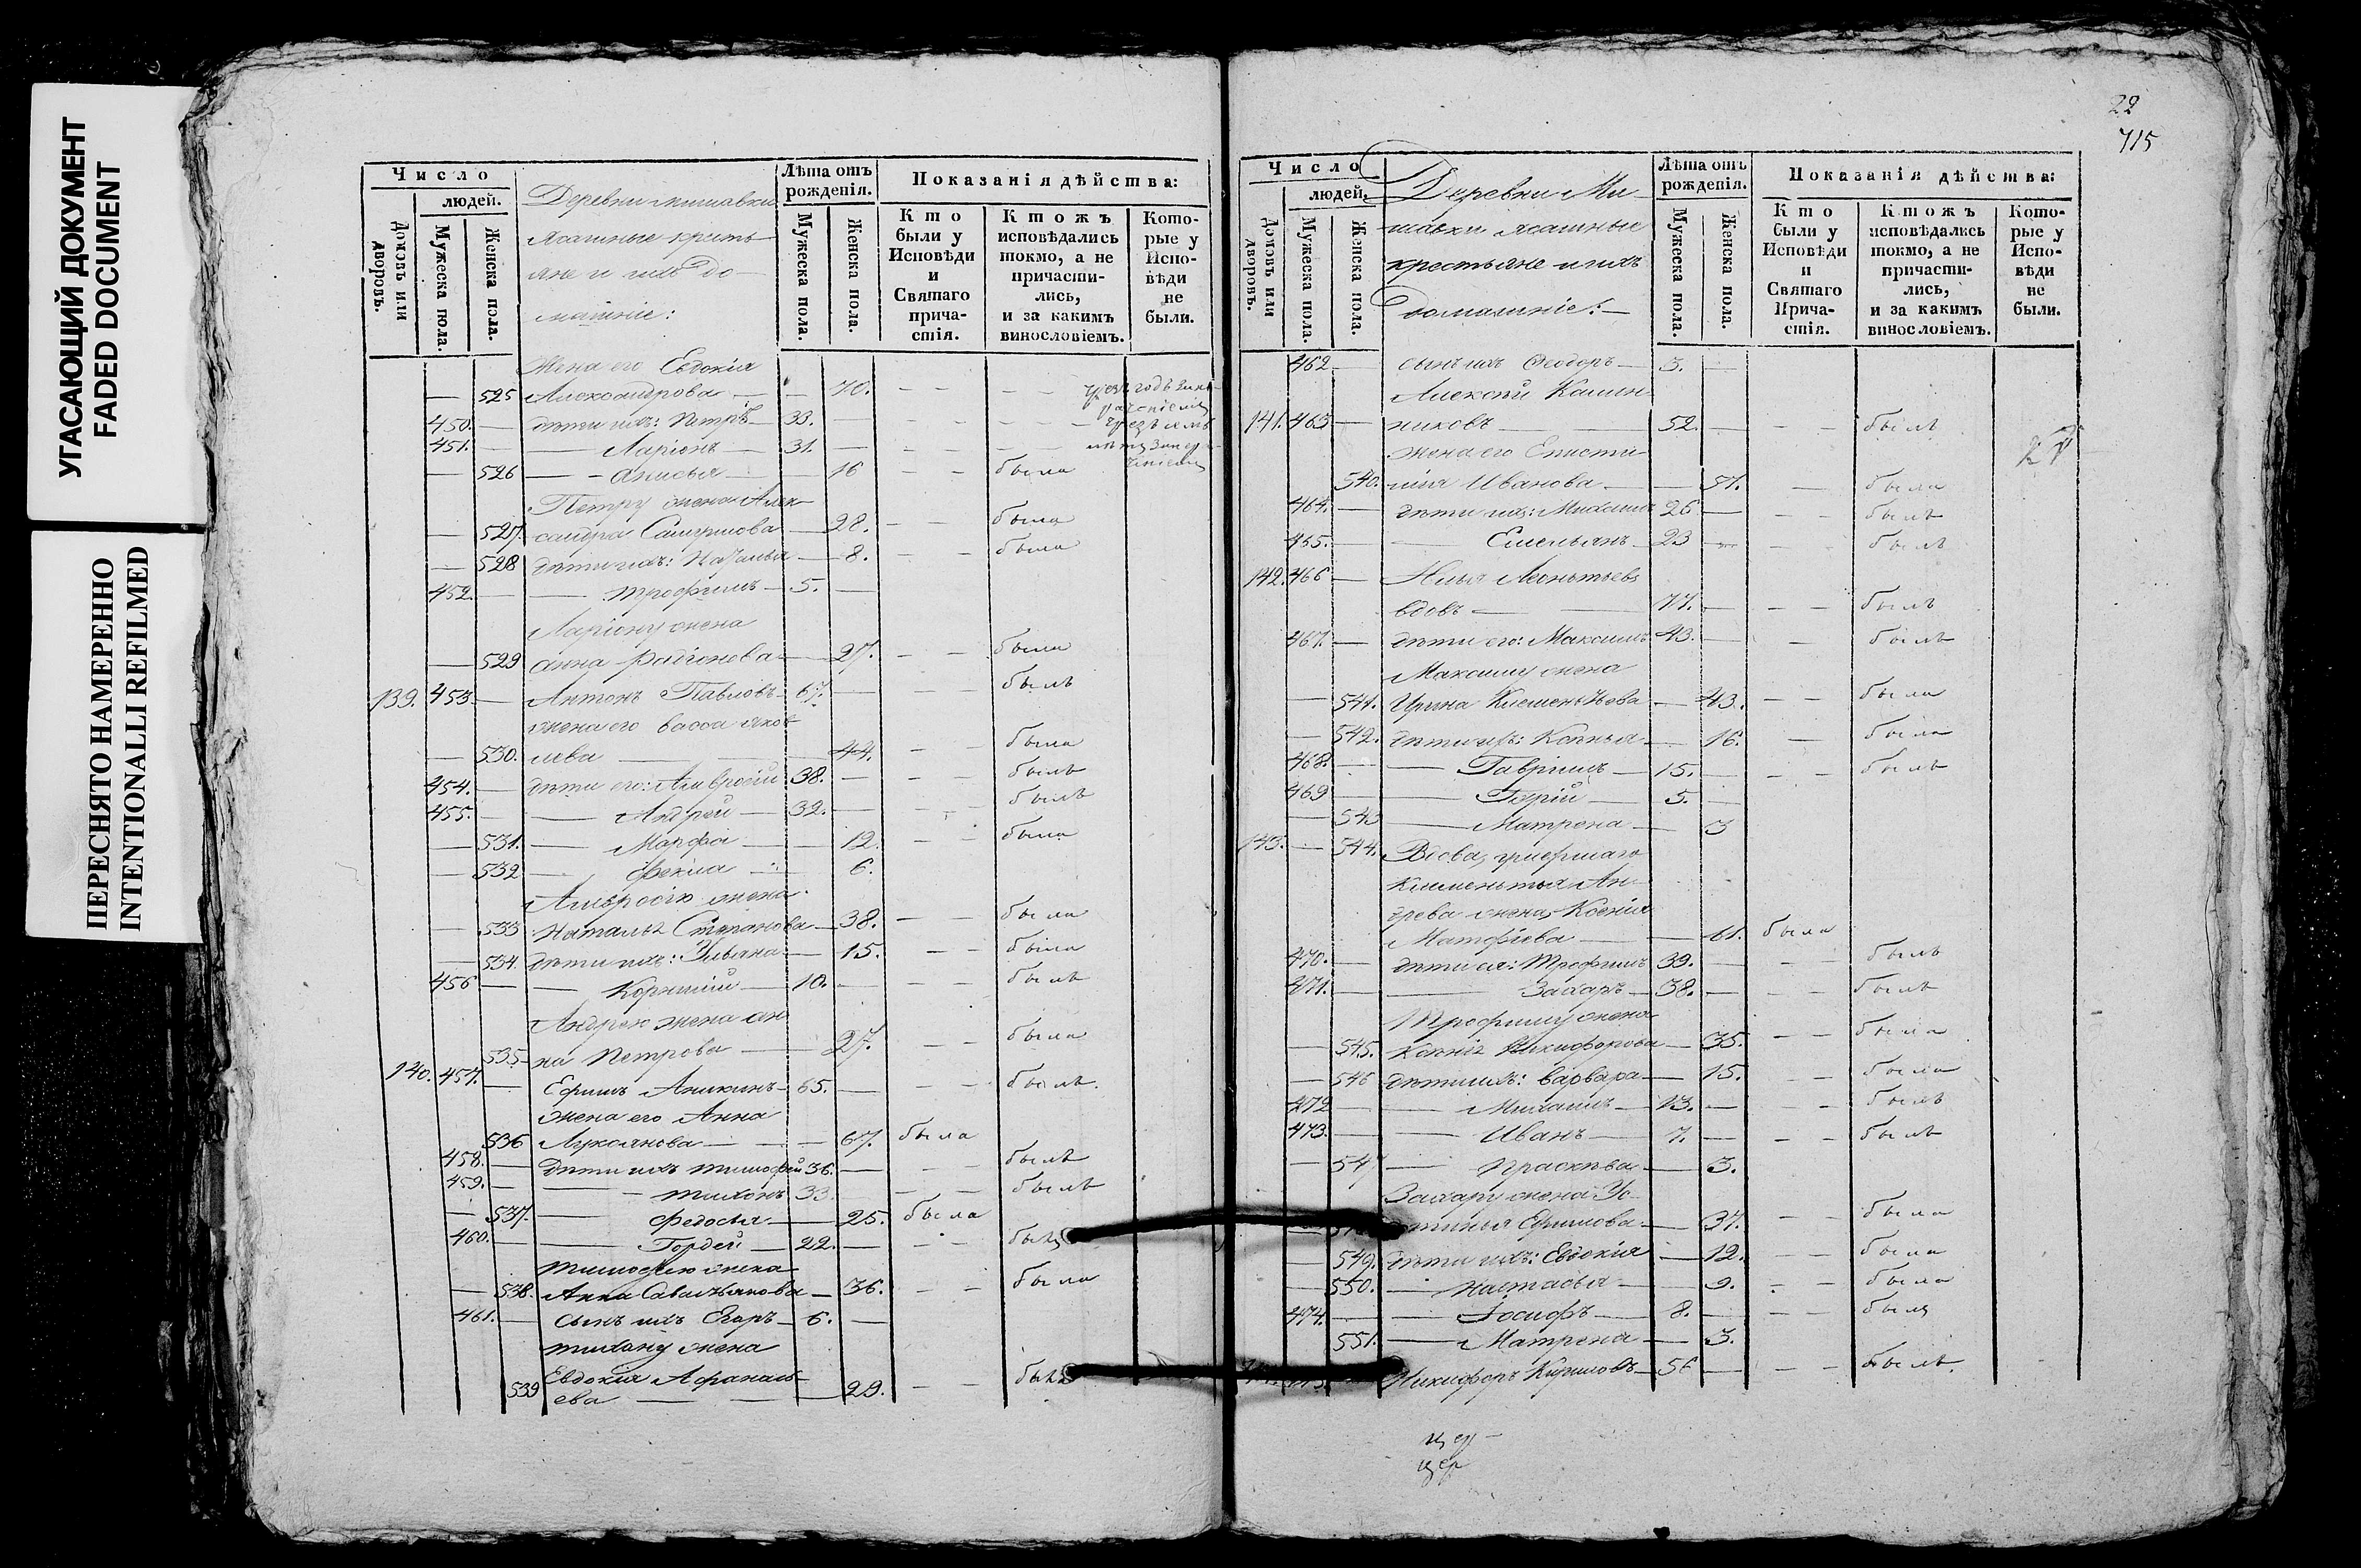 УГАСАЮЩИЙ ДОКУМЕНТ
FADED DOCUMENT
ПЕРЕСНЯТО НАМЕРЕННО
INTENTIONALLI REFILMED
Число
людей.
Домовъ или дворовъ.
Мужеска пола.
Женска пола.
Деревни
Ясашные кресть
яне и ихъ до-
машніе:
Лѣта отъ рожденія.
Мужеска пола.
Женска пола.
Показанія дѣйства:
Кто были у Исповѣди и Святаго прича-стія.
Ктожъ исповѣдались токмо, а не причасти-лись, и за какимъ винословіемъ.
Кото-рые у Испо-вѣди не были.
Жена его Евдокія
525 Александрова 70.
450. дѣти ихъ: Петръ 33.
451. Ларіонъ 31.
526 Анисья 16 была
Петру жена Алек
527. сандра 28. была
528 дѣти ихъ: Наталья 8. была
452. Трофимъ 5.
Ларіону жена
529 Анна Радіонова 27. была
139. 453 Антонъ Павловъ 67. былъ
жена его Васса Яков
530. лева 44. была
454. дѣти его: Амвросій 38. былъ
455. Андрей 32. былъ
531. Марфа 12. была
532 Фекла 6.
Амвросію жена
533 Наталья Степанова 38. была
534. дѣти ихъ: Ульяна 15. была
456 Корнилій 10. былъ
Андрею жена Ан
535 на Петрова 27. была
140. 457. Ефимъ Аникинъ 65. былъ.
жена его Анна
536 Лукоянова 67. была
458. дѣти ихъ Тимофей 36. былъ
459. Тихонъ 33. былъ
537. Федосья 25. была
460. Гордей 22. былъ
Тимофею жена
538. Анна 36. была
461. сынъ ихъ Егоръ 6.
Тихону жена
Евдокія Афанась
539 ева 29.
22
715
Число
людей.
Домовъ или дворовъ.
Мужеска пола.
Женска пола.
Деревни Ми-
ясашные
крестьяне и ихъ
домашніе:
Лѣта отъ рожденія.
Мужеска пола.
Женска пола.
Показанія дѣйства:
Кто были у Исповѣди и Святаго Прича-стія.
Ктожъ исповѣдались токмо, а не причасти-лись, и за какимъ винословіемъ.
Кото-рые у Испо-вѣди не были.
462 сынъ ихъ Феодоръ 3.
Алексѣй Калин
141. 463 никовъ 52. былъ
жена его Еписти
540. мія Иванова 57. была
464. дѣти ихъ: Михаилъ 26 былъ
465. Емельянъ 23 былъ
142. 466 Илья
вдовъ 77. былъ
467. дѣти его: Максимъ 43. былъ
Максиму жена
541. Ирина Клементьева 43. была
542. дѣти ихъ: Ксенія 16. была
468. Гавріилъ 15. былъ
469 5.
543 Матрена 3
143. 544. Вдова, умершаго
Клементья Ан
древа жена, Ксенія
Матфіева 61. была
470. дѣти ея: Трофимъ 39. былъ
471. Захаръ 38. былъ
Трофиму жена
545. Ксенія Никифорова 35. была
546 дѣти ихъ: Варвара 15. была
472 Михаилъ 13. былъ
473. Иванъ 7. былъ
547 Прасковья 3.
Захару жена Ус-
тинья Ефимова 37. была
549. дѣти ихъ: Евдокія 12. была
550. Настасья 9. была
474. Іосифъ 8. былъ
551. Матрена 3.
Никифоръ Кириловъ 56 былъ.